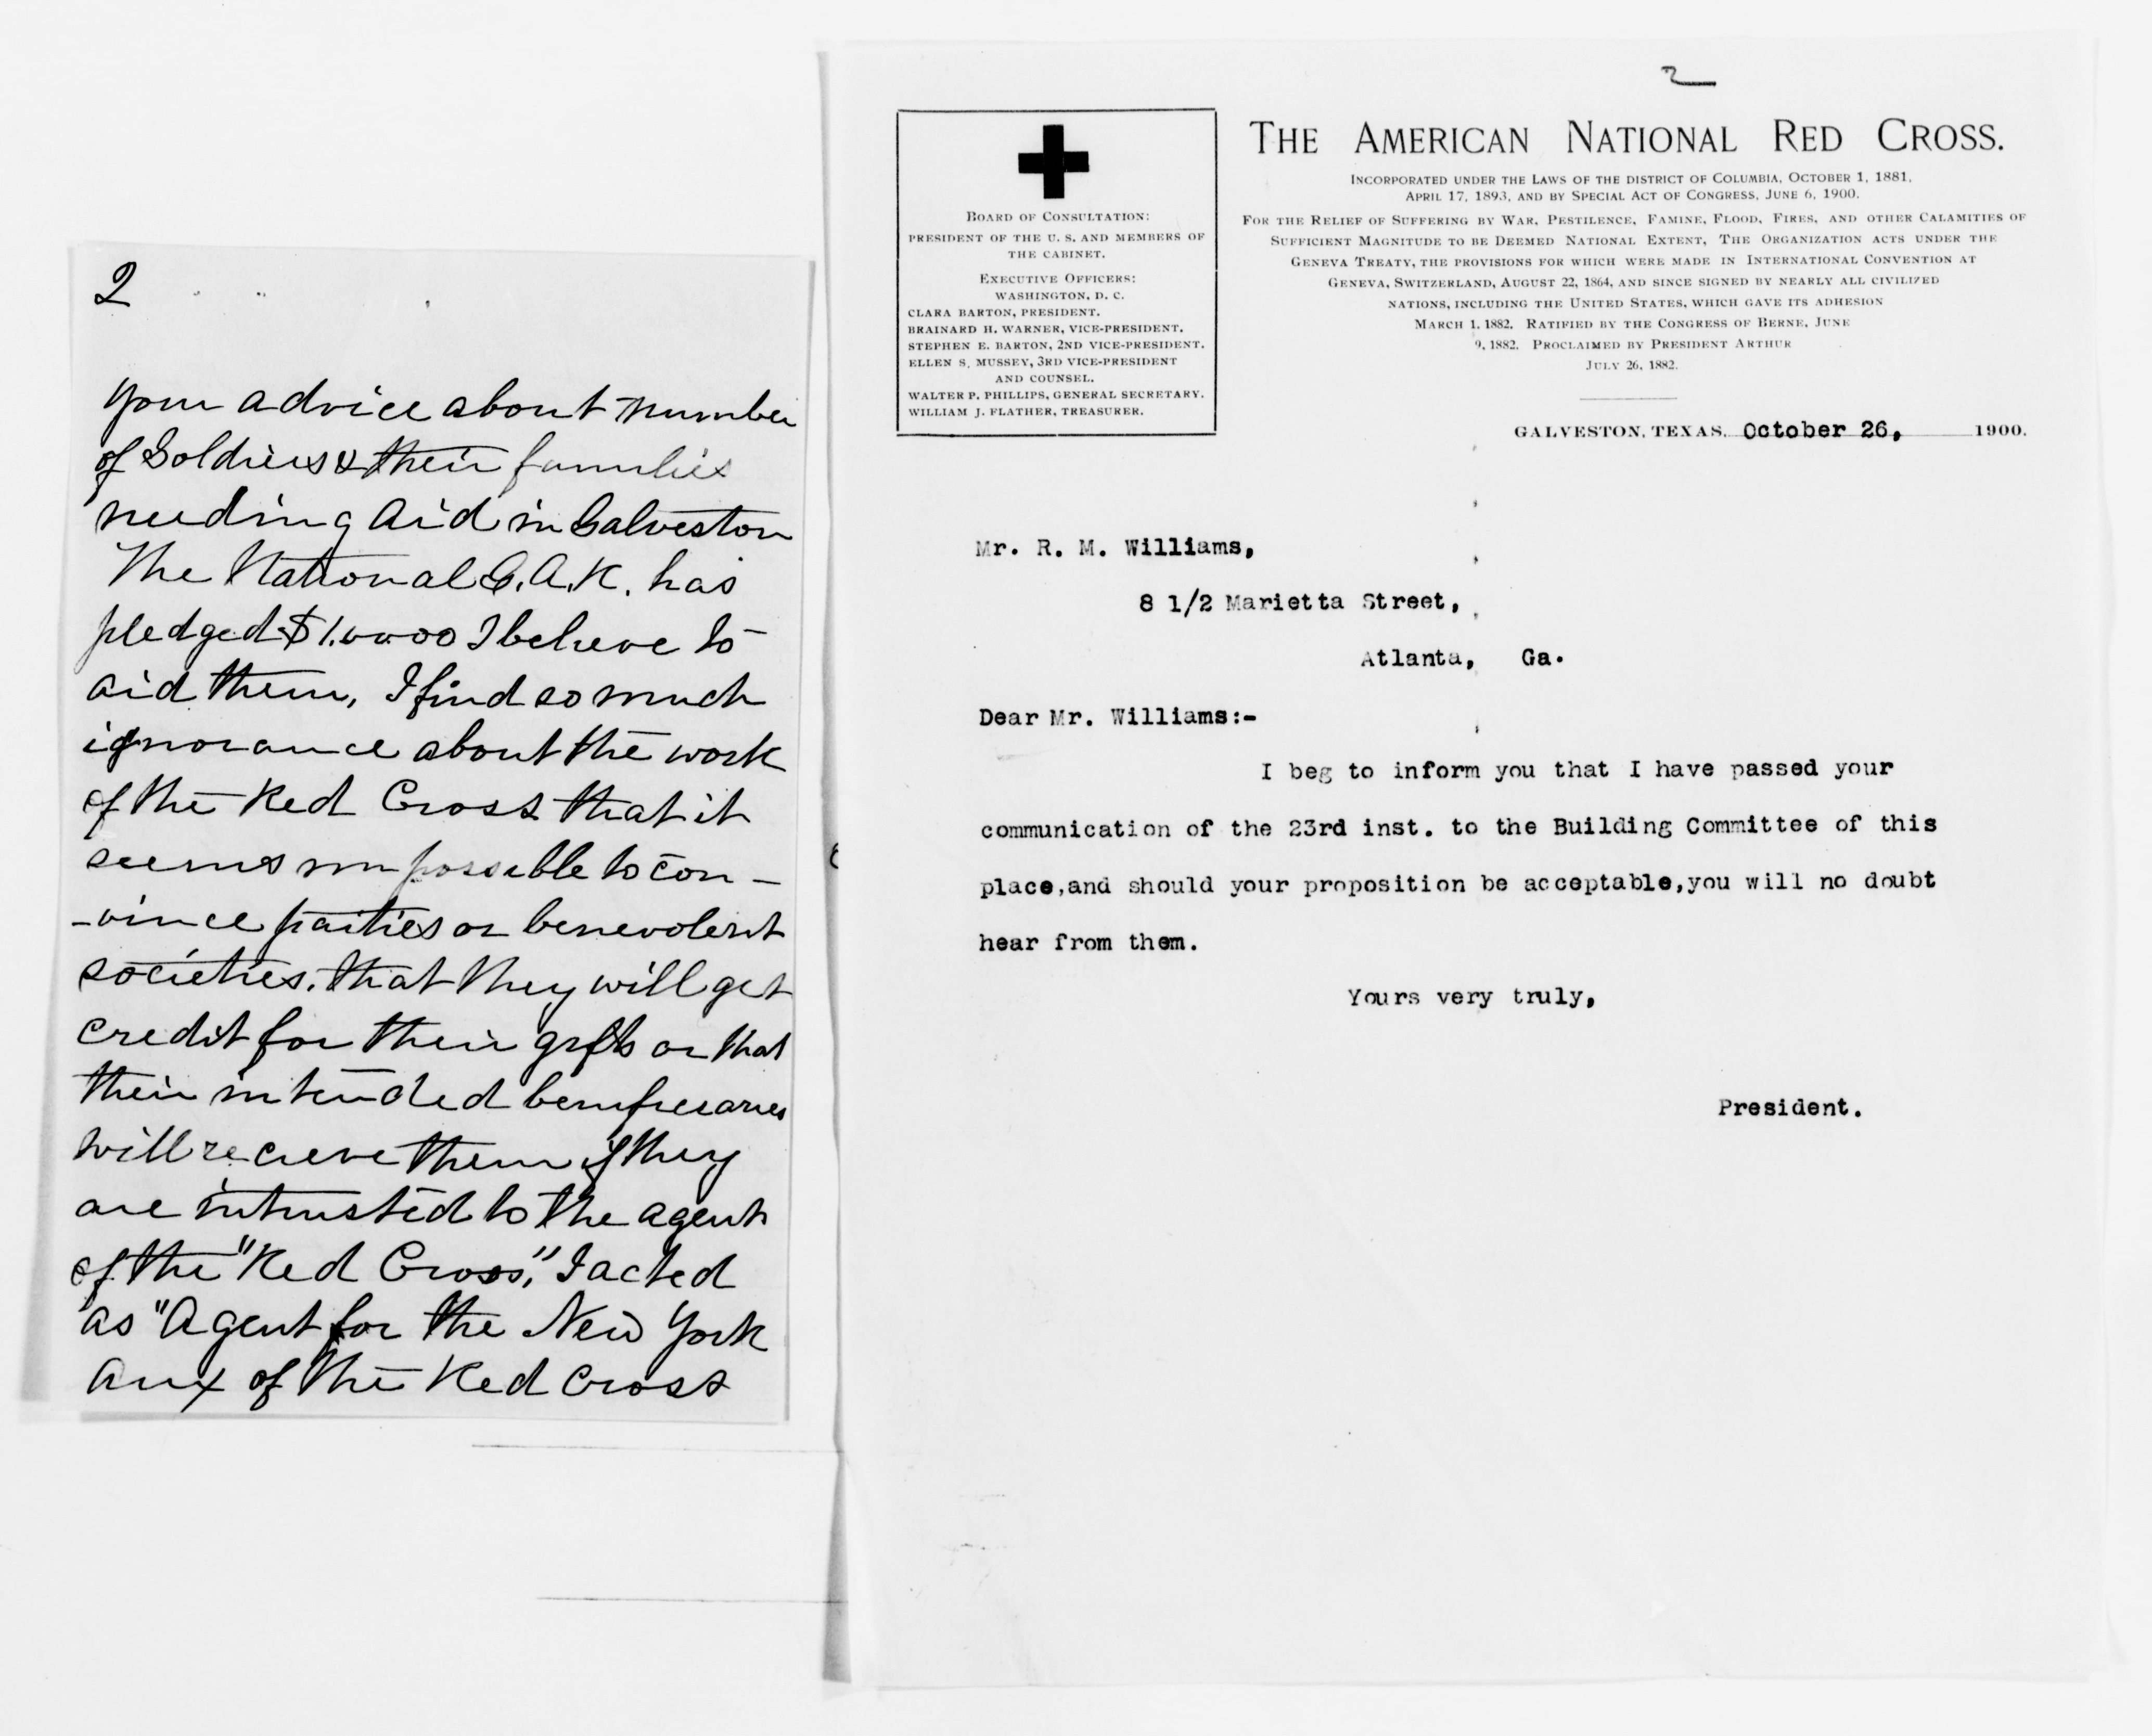 2
your advice about number
of Soldiers & their families
needing aid in Galveston
The National G.A.R. has
pledged $1.00000 I believe to
aid them, I find so much
ignorance about the work
of the Red Cross that it
seems impossible to con-
-vince parties or benevolent
societies. that they will get
credit for their gifts or that
their intended beneficiaries
will recieve them if they
are intrusted to the agent
of the "Red Cross," I acted
as "Agent for the New York
aux of the Red Cross
2
THE AMERICAN NATIONAL RED CROSS.
INCORPORATED UNDER THE LAWS OF THE DISTRICT OF COLUMBIA, OCTOBER 1, 1881,
APRIL 17, 1893, AND BY SPECIAL ACT OF CONGRESS, JUNE 6, 1900.
FOR THE RELIEF OF SUFFERING BY WAR, PESTILENCE, FAMINE, FLOOD, FIRES, AND OTHER CALAMITIES OF
SUFFICIENT MAGNITUDE TO BE DEEMED NATIONAL EXTENT, THE ORGANIZATION ACTS UNDER THE
GENEVA TREATY, THE PROVISIONS FOR WHICH WERE MADE IN INTERNATIONAL CONVENTION AT
GENEVA, SWITZERLAND, AUGUST 22, 1864, AND SINCE SIGNED BY NEARLY ALL CIVILIZED
NATIONS, INCLUDING THE UNITED STATES, WHICH GAVE ITS ADHESION
MARCH 1, 1882. RATIFIED BY THE CONGRESS OF BERNE, JUNE
9, 1882. PROCLAIMED BY PRESIDENT ARTHUR
JULY 26, 1882.
BOARD OF CONSULTATION:
PRESIDENT OF THE U. S. AND MEMBERS OF
THE CABINET.
EXECUTIVE OFFICERS:
WASHINGTON, D. C.
CLARA BARTON, PRESIDENT.
BRAINARD H. WARNER, VICE-PRESIDENT.
STEPHEN E. BARTON, 2ND VICE-PRESIDENT.
ELLEN S. MUSSEY, 3RD VICE-PRESIDENT
AND COUNSEL.
WALTER P. PHILLIPS, GENERAL SECRETARY.
WILLIAM J. FLATHER, TREASURER.
GALVESTON, TEXAS, October 26, 1900.
Mr. R. M. Williams,
8 1/2 Marietta Street,
Atlanta, Ga.
Dear Mr. Williams:-
I beg to inform you that I have passed your
communication of the 23rd inst. to the Building Committee of this
place,and should your proposition be acceptable,you will no doubt
hear from them.
Yours very truly,
President.